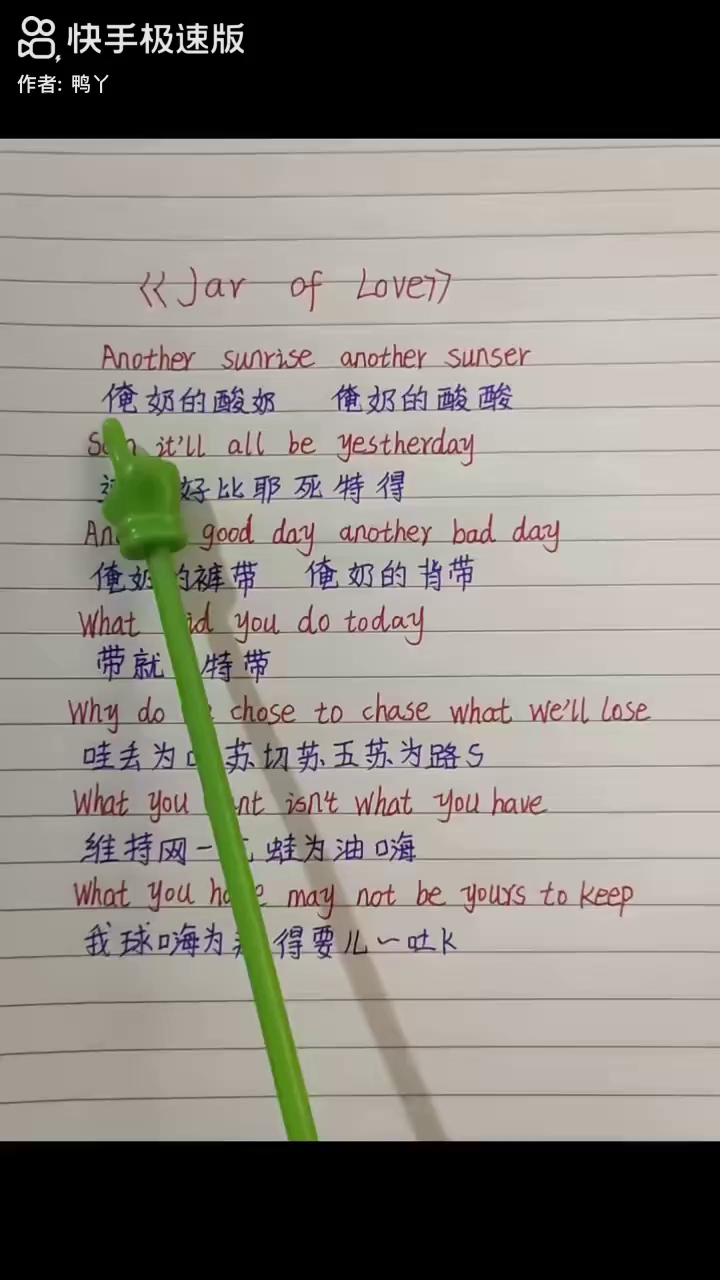 快手极速版
作者: 鸭丫
《Jar of Love》
Another sunrise another sunser
俺奶的酸奶 俺奶的酸酸
it'll all be yestherday
好比耶死特得
good day another bad day
俺奶的裤带 俺奶的背带
What you do today
带就 特带
Why do chose to chase what we'll lose
哇丢为 苏切苏五苏为路S
What you isn't what you have
维持网一 蛙为油嗨
What you have may not be yours to keep
我球嗨为 得要儿一吐K